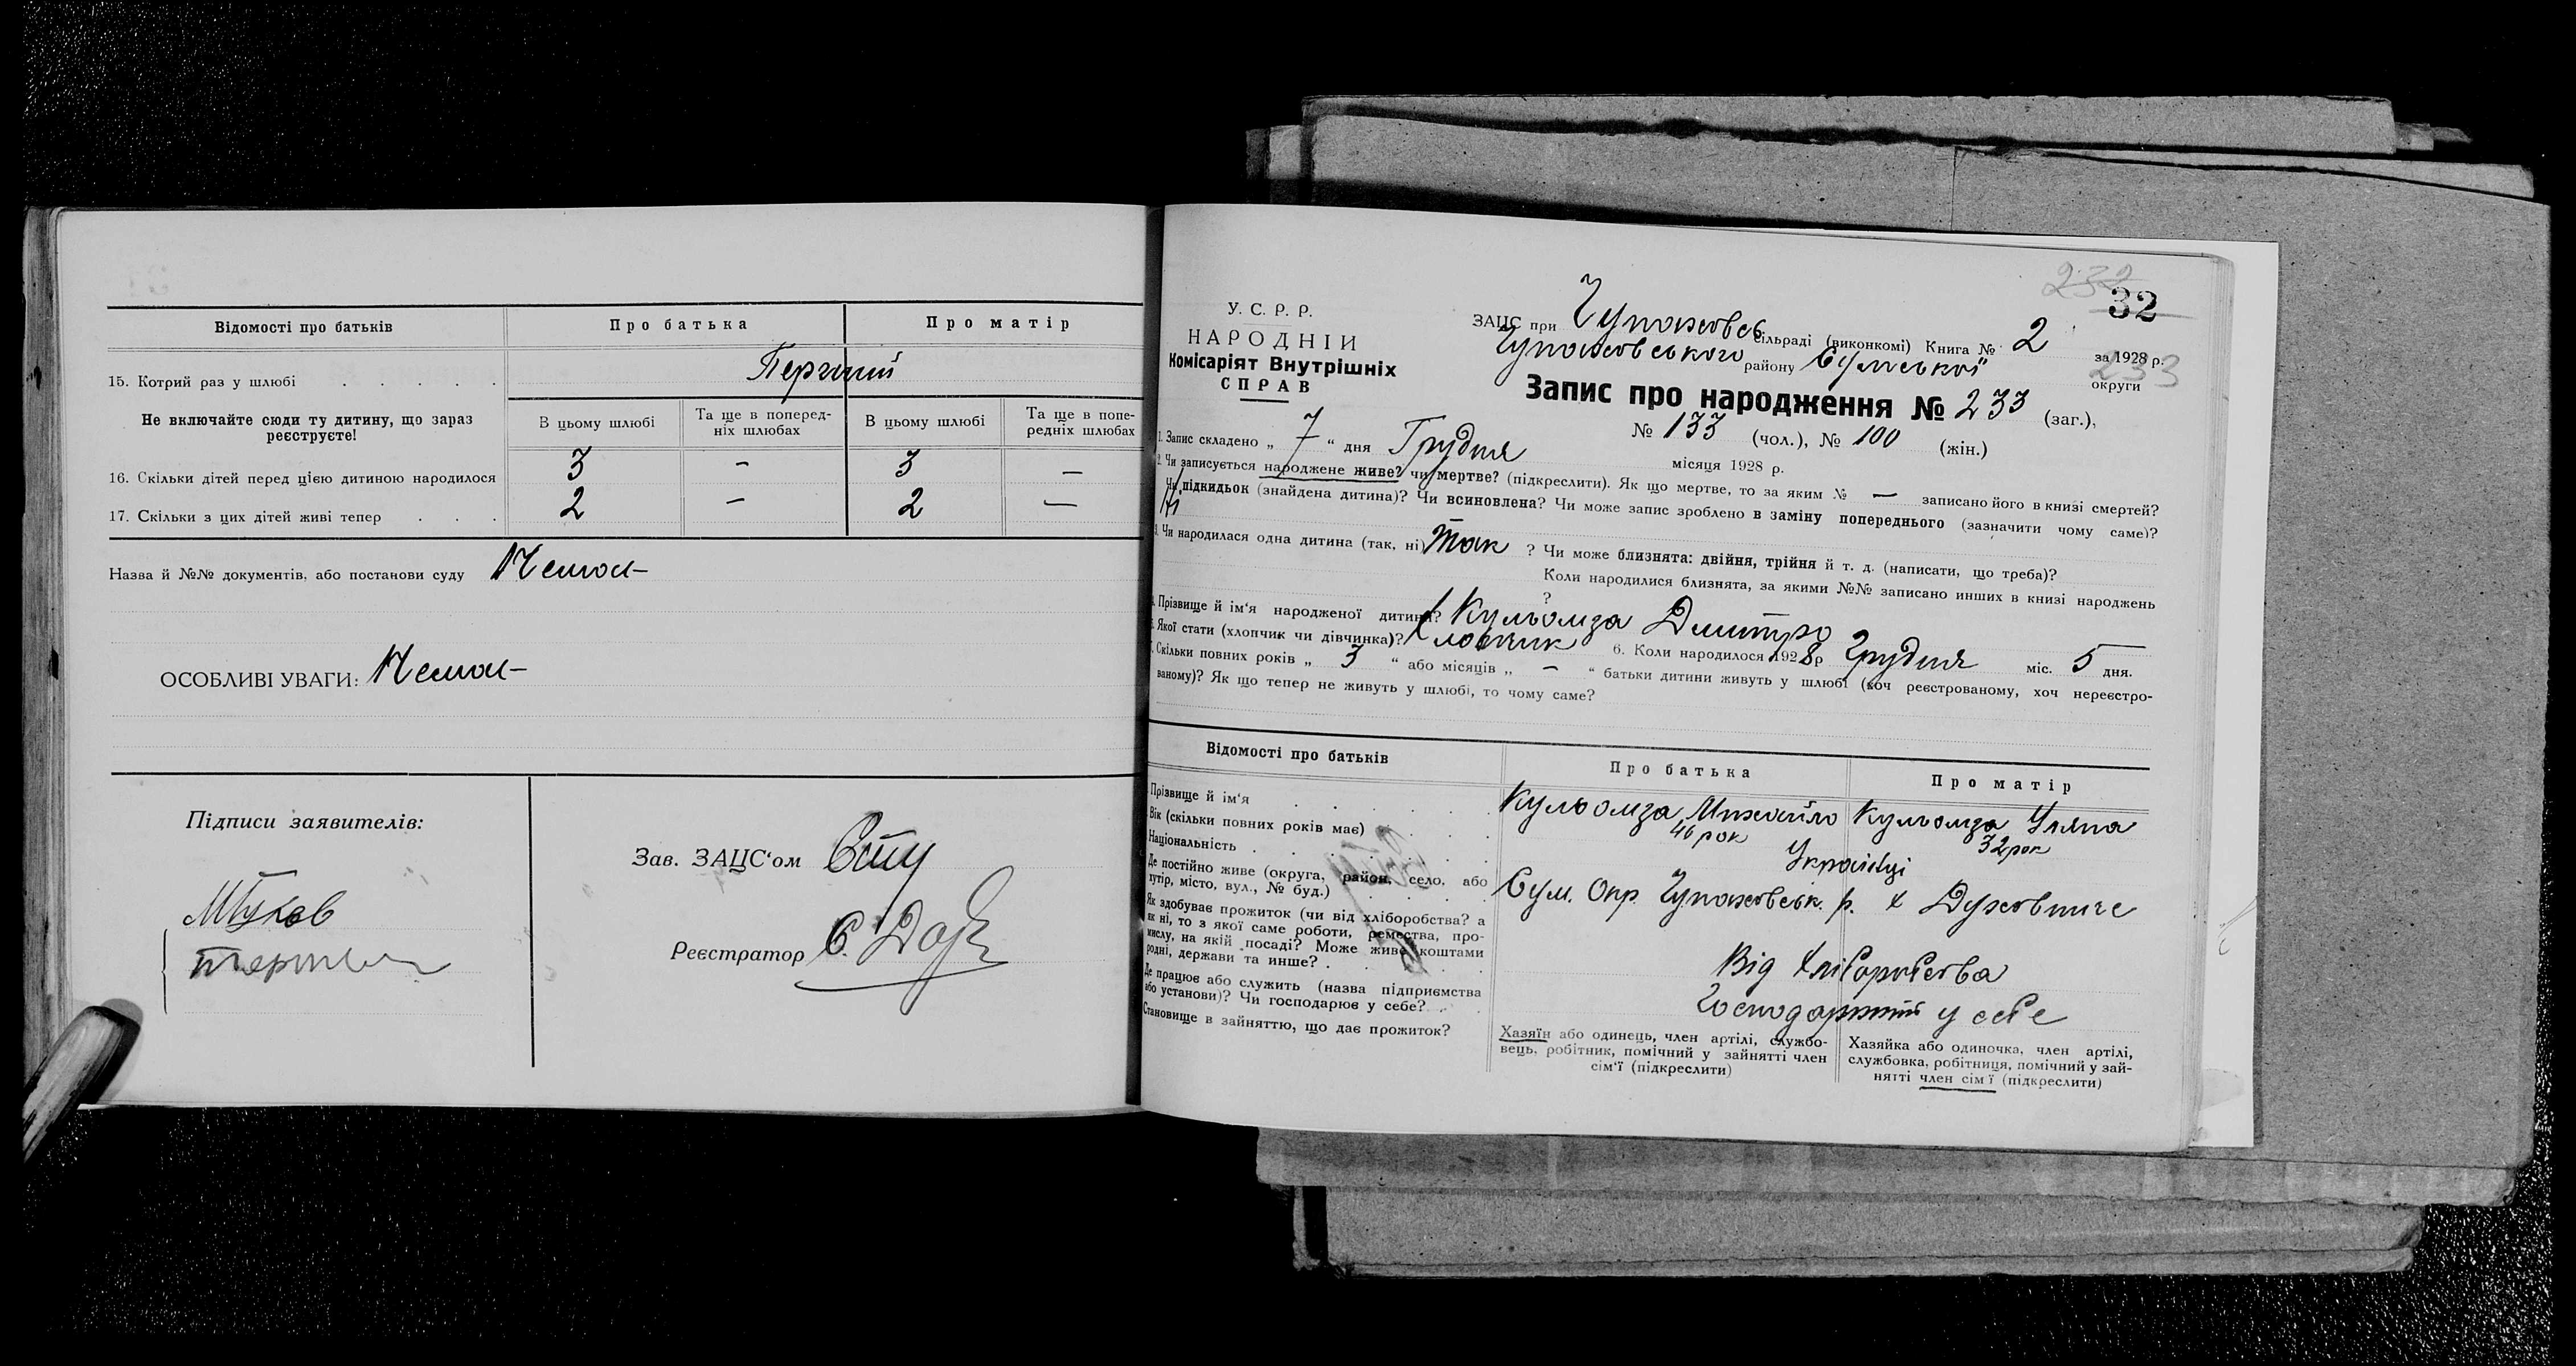 Відомості про батьків
Про батька
Про матір
15. Котрий раз у шлюбі . . . . .
Перший
Не включайте сюди ту дитину, що зараз реєструєте!
В цьому шлюбі
Та ще в поперед-
ніх шлюбах
В цьому шлюбі
Та ще в попе-
редніх шлюбах
16. Скільки дітей перед цією дитиною народилося 3 - 3 -
17. Скільки з цих дітей живі тепер . . . 2 - 2 -
Назва й №№ документів, або постанови суду Немає
ОСОБЛИВІ УВАГИ: Немає
Підписи заявителів:
Зав. ЗАЦС'ом
Реєстратор
232
32
У. С. Р. Р.
НАРОДНІЙ
Комісаріят Внутрішніх
СПРАВ
ЗАЦС при Чупахівсь сільраді (виконкомі) Книга № 2 за 1928 р.
Чупахівського району Сумської округи
233
Запис про народження № 233 (заг.),
№ 133 (чол.), № 100 (жін.)
1. Запис складено „ 7 " дня Грудня місяця 1928 р.
2. Чи записується народжене живе? чи мертве? (підкреслити). Як що мертве, то за яким № — записано його в книзі смертей?
Чи підкидьок (знайдена дитина)? Чи всиновлена? Чи може запис зроблено в заміну попереднього (зазначити чому саме)?
Ні
3. Чи народилася одна дитина (так, ні) так ? Чи може близнята: двійня, трійня й т. д. (написати, що треба)?
Коли народилися близнята, за якими №№ записано инших в книзі народжень
?
Прізвище й ім'я народженої дитини? Кульомза Дмитро
Якої стати (хлопчик чи дівчинка)? Хлопчик 6. Коли народилося 1928 р Грудня міс. 5 дня.
Скільки повних років „ 3 " або місяців „ — " батьки дитини живуть у шлюбі (хоч реєстрованому, хоч нереєстро-
ваному)? Як що тепер не живуть у шлюбі, то чому саме?
Відомості про батьків
Про батька
Про матір
Прізвище й ім'я . . . . . Кульомза Михайло Кульомза Уляна
Вік (скільки повних років має) . . . 46 рок 32 рок
Національність . . . . . . . Українці
Де постійно живе (округа, район, село, або
хутір, місто, вул., № буд.) . . . . Сум. Окр. Чупахівськ. р. х
Як здобуває прожиток (чи від хліборобства? а
як ні, то з якої саме роботи, ремества, про-
мислу, на якій посаді? Може живе коштами
родні, держави та инше? . . . . . Від хліборобства
Де працює або служить (назва підприємства
або установи)? Чи господарює у себе? . . у себе
Становище в зайняттю, що дає прожиток?
Хазяїн або одинець, член артілі, службо-
вець, робітник, помічний у зайнятті член
сім'ї (підкреслити)
Хазяйка або одиночка, член артілі,
службовка, робітниця, помічний у зай-
нятті член сім'ї (підкреслити)